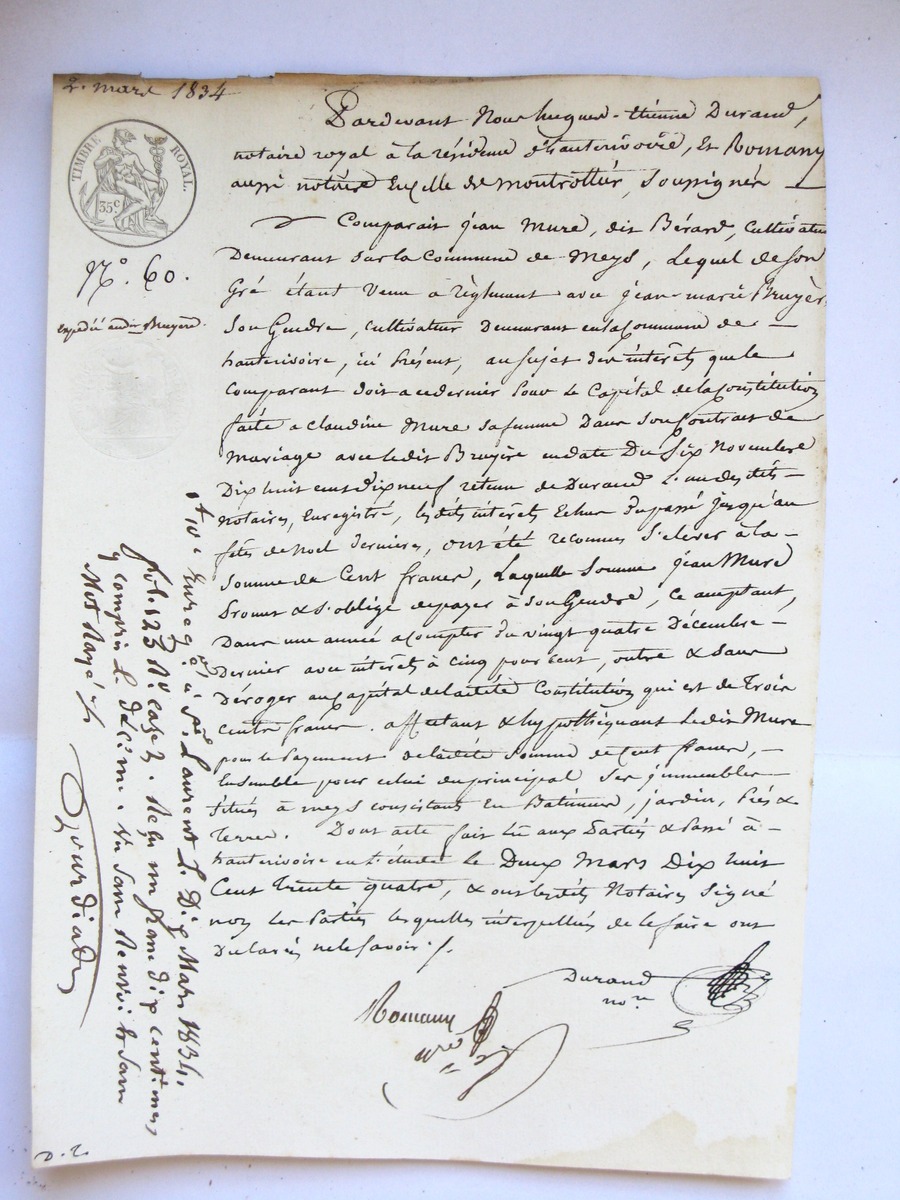 2. mars 1834
TIMBRE ROYAL.
35c
N.° 60.
expédié audit Bruyere.
Pardevant Nous hugues-étienne Durand,
notaire royal à la résidence d'hauterivoire, Et Romany
aussi notaire En celle de montrottier, soussignés
Comparait jean Mure, dit Bérard, Cultivateur
Demeurant sur la Commune de Meys, Lequel de son
Gré étant Venu a règlement avec jean-marie Bruyère
son Gendre, cultivateur Demeurant en la Commune de
hauterivoire, ici Présent, au sujet des intérêts que le
Comparant doit a ce dernier Pour le Capital de la Constitution
faite a Claudine Mure sa femme Dans son Contrat de
Mariage avec ledit Bruyère en date Du Six Novembre
Dix huit cent Dix neuf retenu de Durand L'un des dits
Notaires, Enregistré, les dits intérêts Echus du passé jusqu'au
fêtes de Noel dernieres, ont été reconnus S'elever à la
Somme de Cent francs, Laquelle Somme jean Mure
Promet & S'oblige de payer à Son Gendre, Ce acceptant,
Dans une année a compter du vingt quatre Décembre
Dernier avec intérêts à cinq pour cent, outre & sans
Déroger au capital de la dite Constitution qui est de Trois
Cents francs. affectant & hypothéquant Ledit Mure
pour le Payement de la dite Somme de Cent francs,
Ensemble pour celui du principal Ses immeubles
Situés à meys consistant En Batiments, jardin, Prés &
Terres. Dont acte fait Lu aux Parties & Passé à
hauterivoire en l'étude le Deux Mars Dix huit
Cent Trente quatre, & ont lesdits Notaires Signé
non Les Parties lesquelles interpellées de le faire ont
Déclarés ne le Savoir ./.
Durand
nore
Romany
nre
Enregé à St Laurent Le Dix Mars 1834.
fol. 123 Vo case 2. Reçu un franc dix centimes
y compris Le décime. Vu sans Renvoi & sans
Mot Rayé ./.
D. 2.